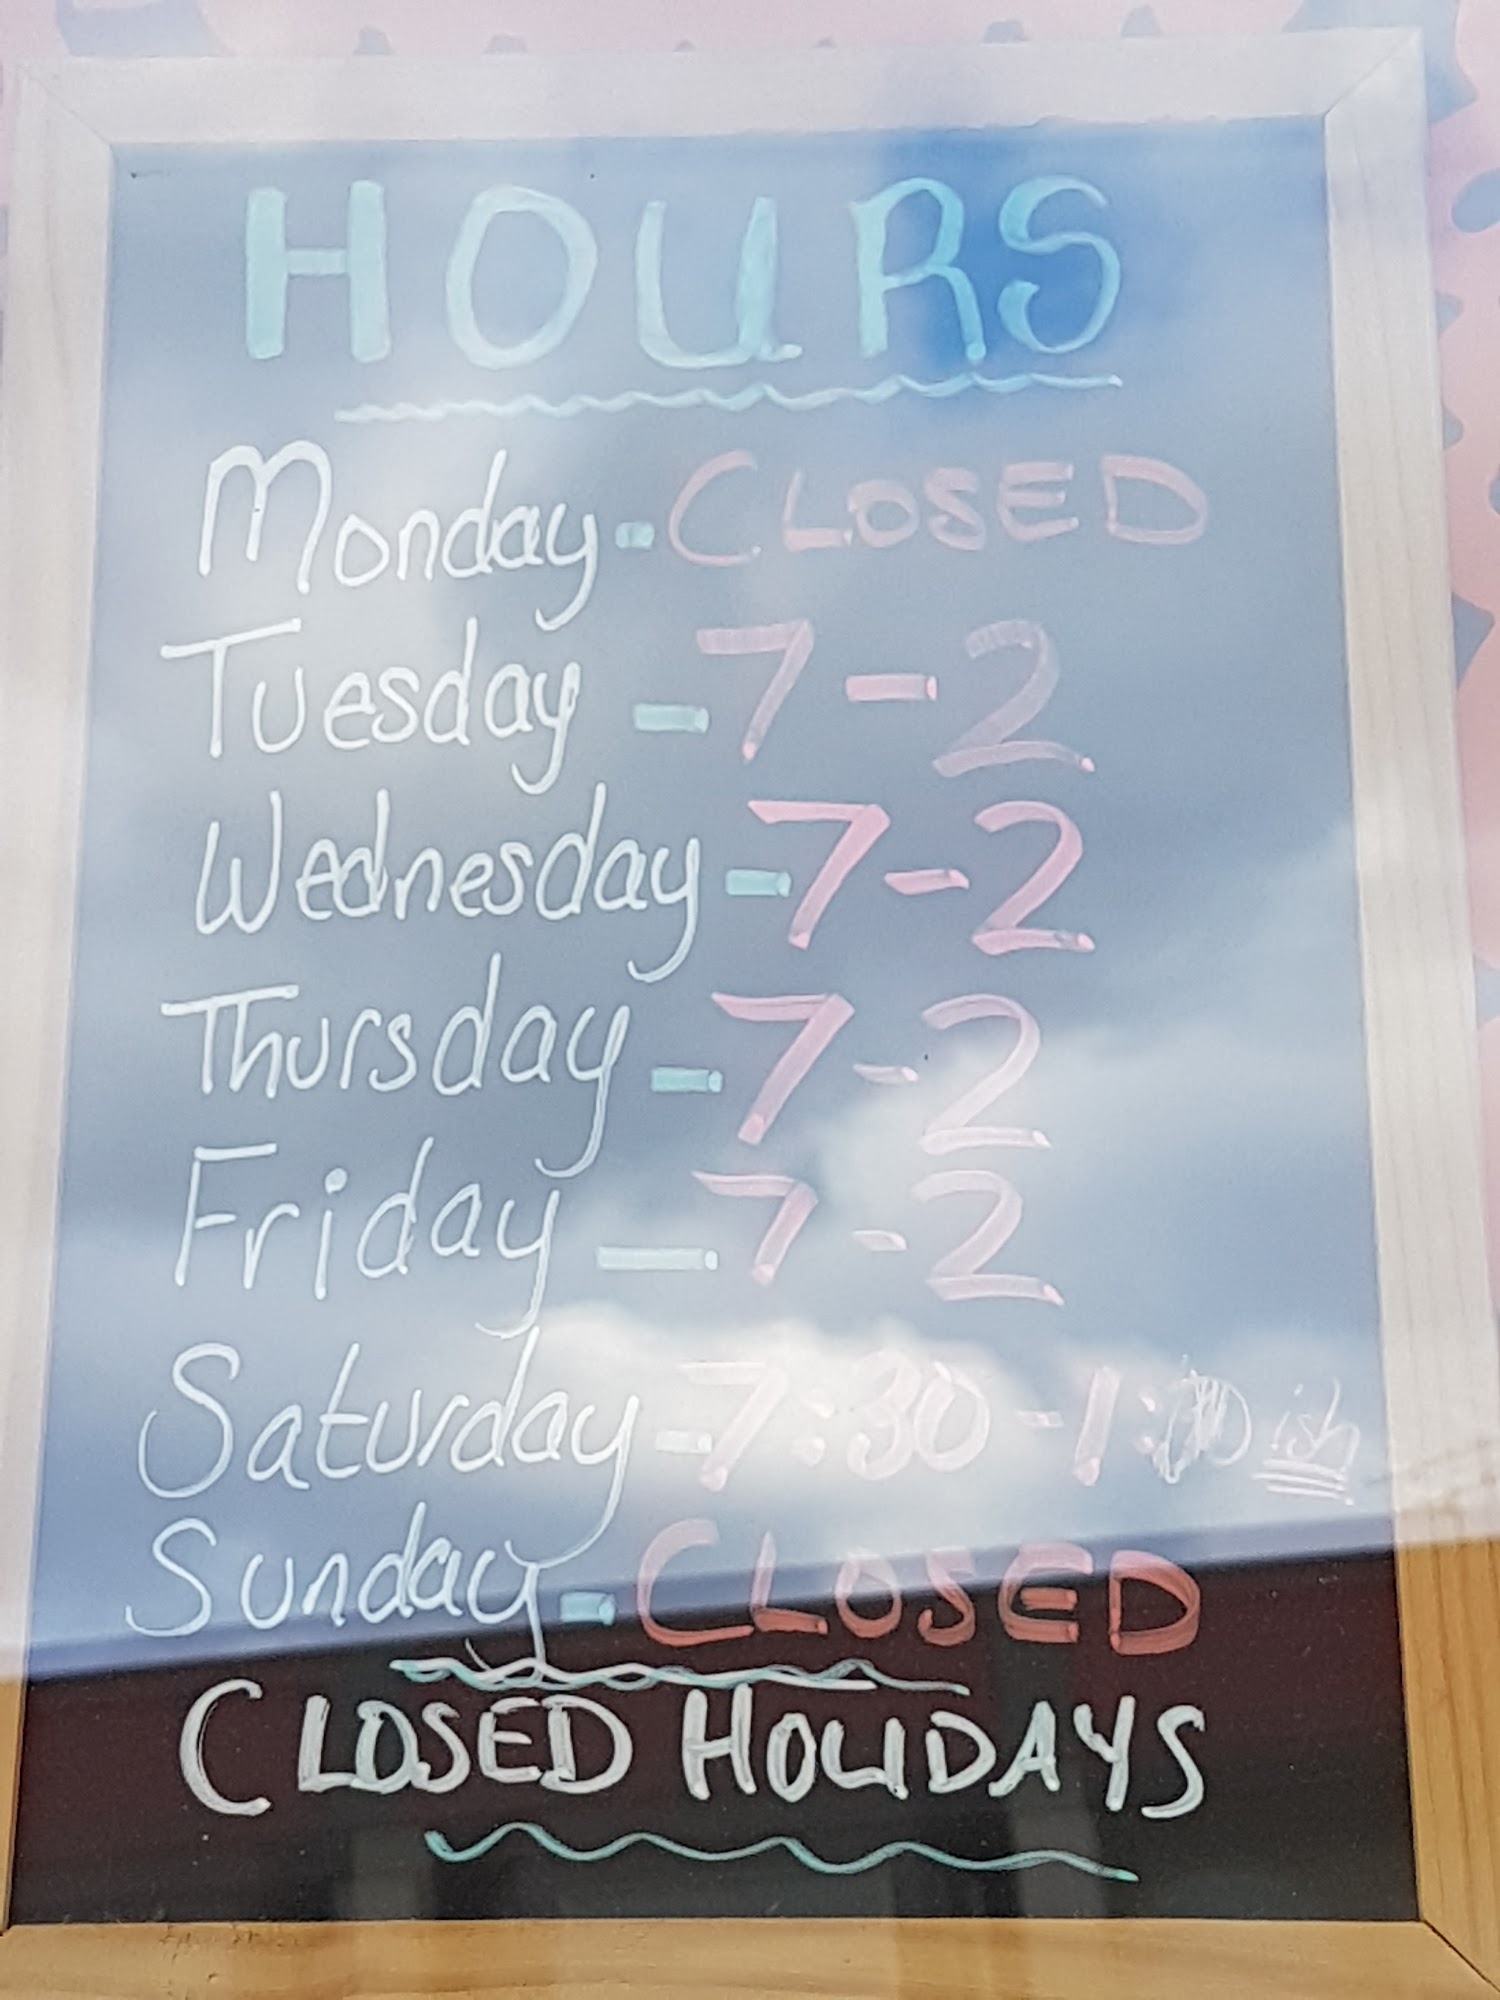 HOURS
Monday - CLOSED
Tuesday - 7 - 2
Wednesday - 7 - 2
Thursday - 7 - 2
Friday - 7 - 2
Saturday - 7:30 - 1:00 ish
Sunday - CLOSED
CLOSED HOLIDAYS